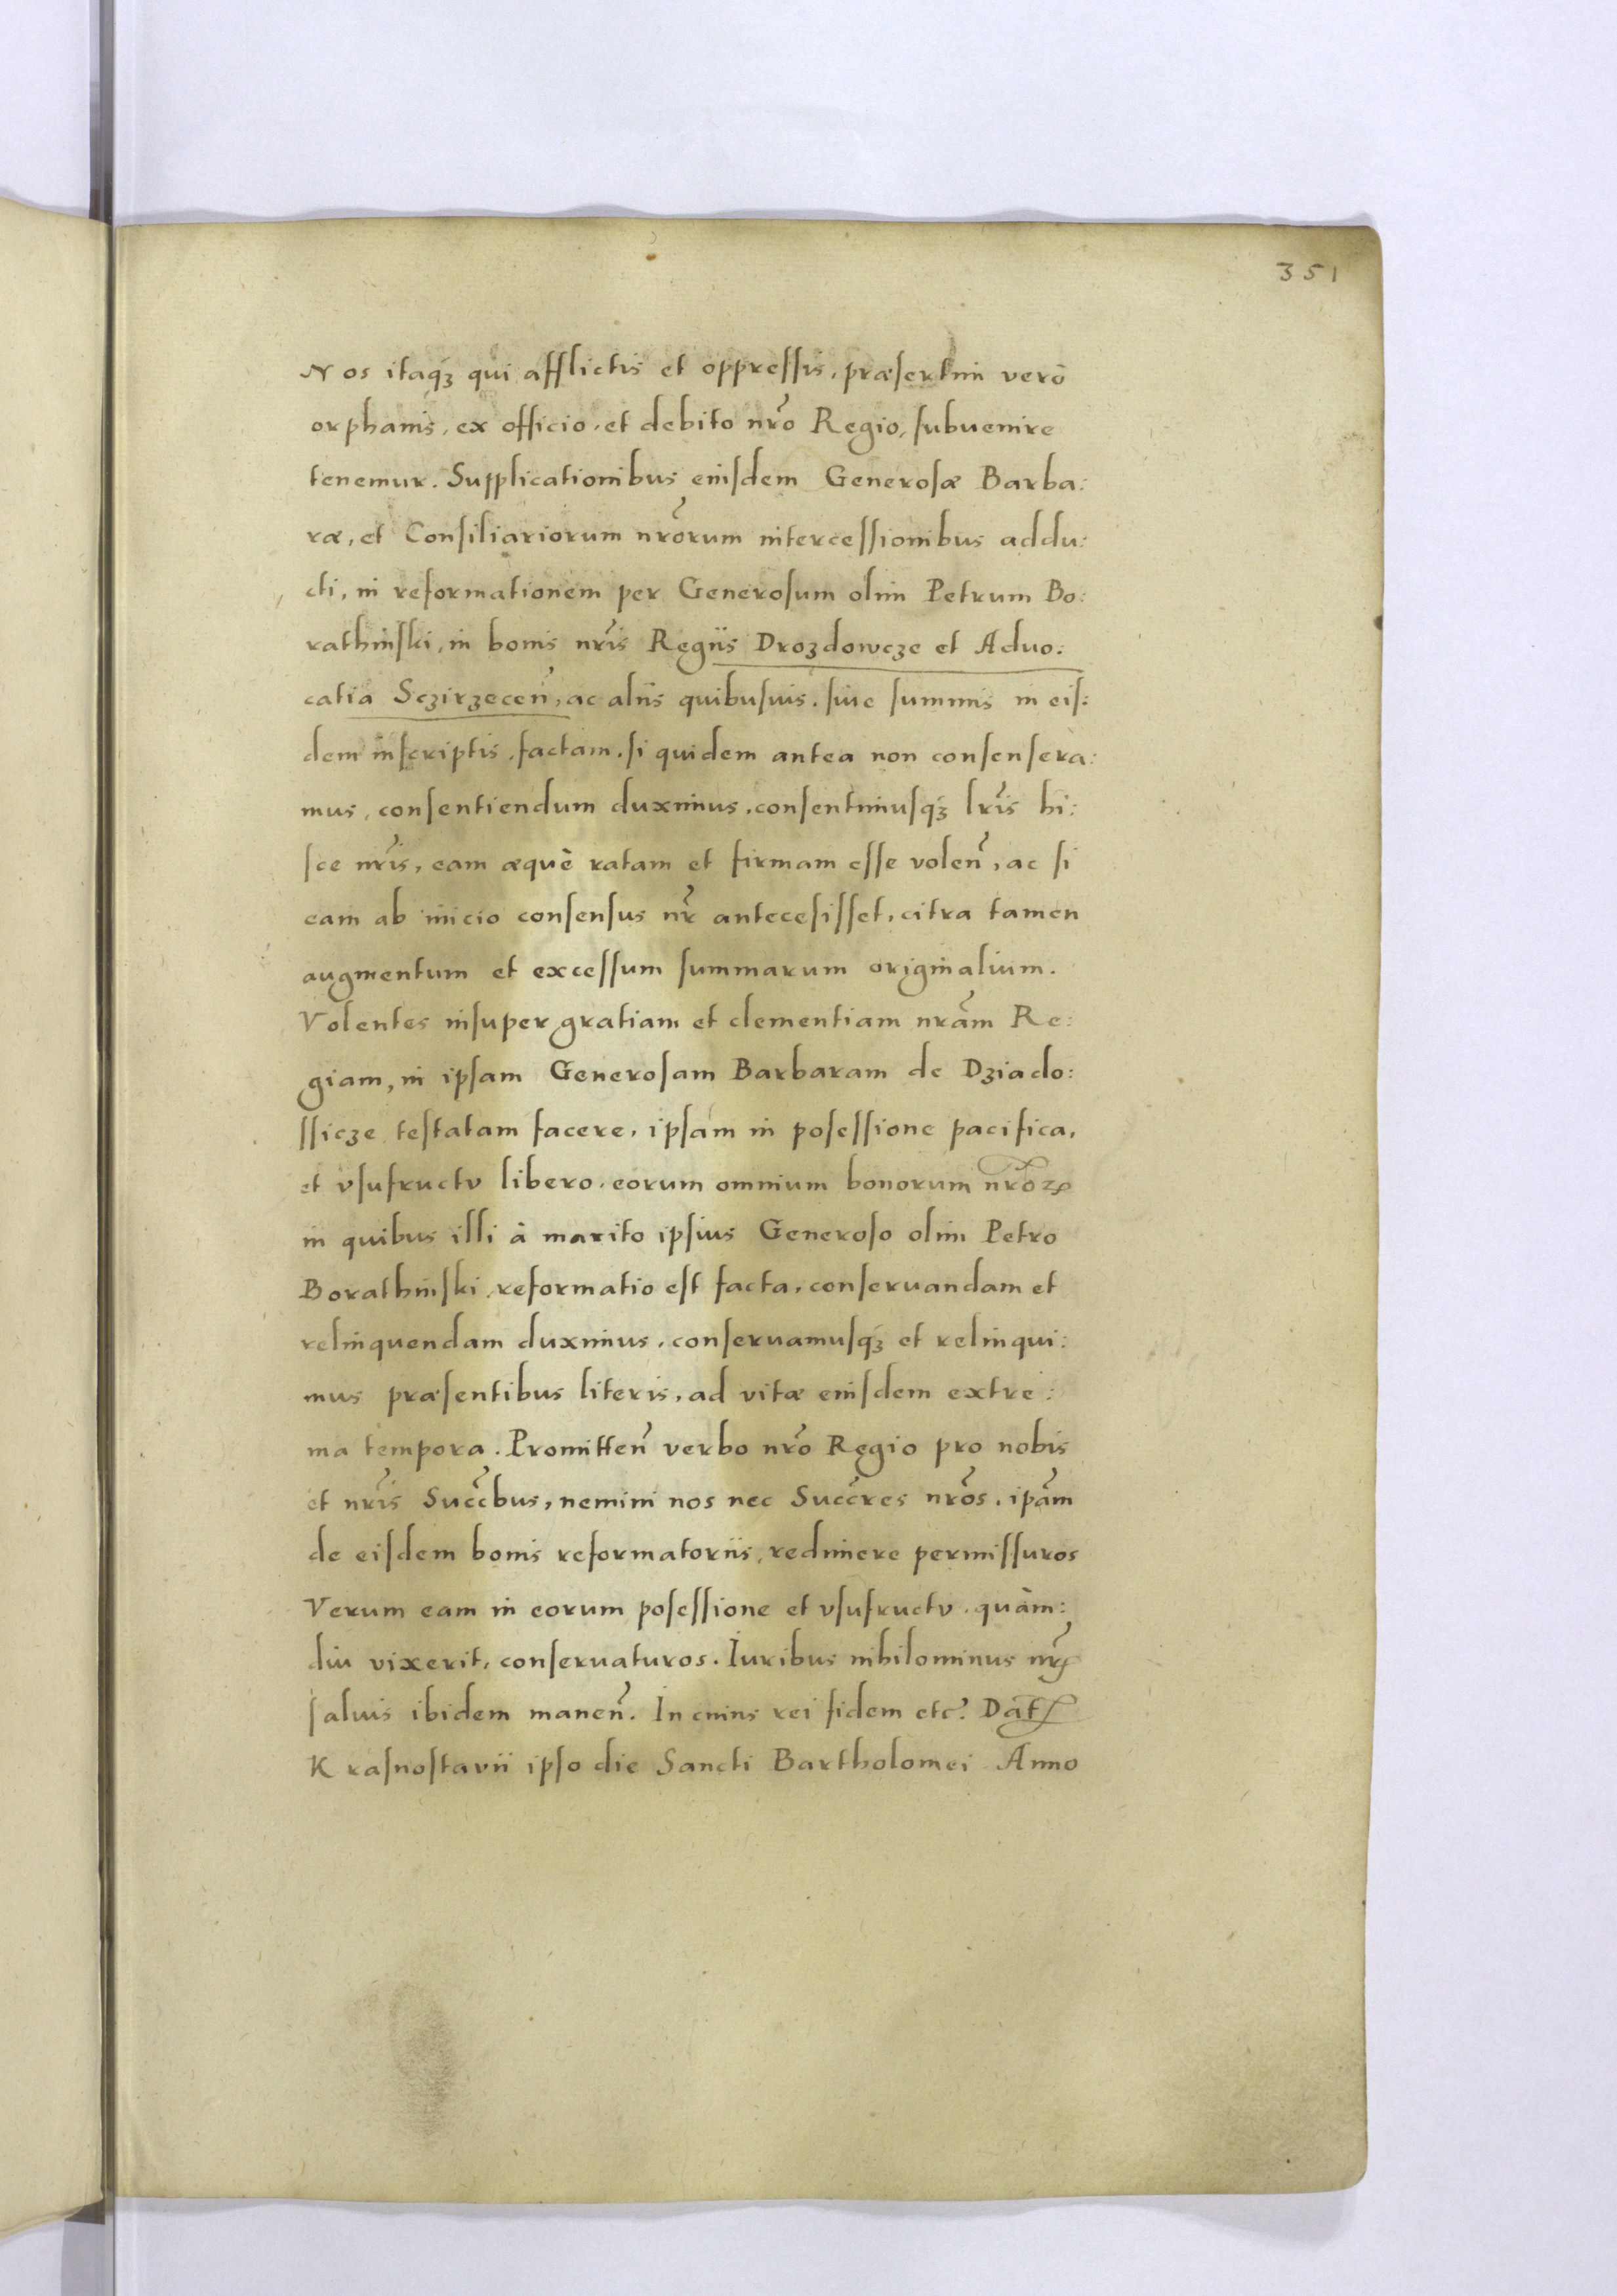 351
Nos itaqꝫ qui afflictis et oppreſſis, præſertim verò
orphanis, ex officio, et debito nr̃o Regio, ſubuenire
tenemur. Supplicationibus eiuſdem Generoſæ Barba:
ræ, et Conſiliariorum nr̃orum interceſſionibus addu:
cti, in reformationem per Generoſum olim Petrum Bo:
rathinſki, in bonis nr̃is Regiis Drozdowcze et Aduo:
catia Sczirzeceñ, ac aliis quibuſuis, ſiue ſummis in eiſ:
dem inſcriptis, factam, ſi quidem antea non conſenſera:
mus, conſentiendum duximus, conſentimuſqꝫ lr̃is hi:
ſce nr̃is, eam æquè ratam et firmam eſſe voleñ, ac ſi
eam ab inicio conſenſus nr̃ anteceſiſſet, citra tamen
augmentum et exceſſum ſummarum originalium.
Volentes inſuper gratiam et clementiam nr̃am Re:
giam, in ipſam Generoſam Barbaram de Dziado:
ſſicze teſtatam facere, ipſam in poſeſſione pacifica,
et vſufructv libero, eorum omnium bonorum nr̃oꝝ
in quibus illi à marito ipſius Generoſo olim Petro
Borathinſki, reformatio eſt facta, conſeruandam et
relinquendam duximus, conſeruamuſqꝫ et relinqui:
mus præſentibus literis, ad vitæ eiuſdem extre:
ma tempora. Promitteñ verbo nr̃o Regio pro nobis
et nr̃is Succ̃bus, nemini nos nec Succ̃res nr̃os, ip̃am
de eiſdem bonis reformatoriis, redimere permiſſuros
Verum eam in eorum poſeſſione et vſufructv, quàm:
diu vixerit, conſeruaturos. Iuribus nihilominus nr̃is
ſaluis ibidem maneñ. In cuius rei fidem etc̃. Dat̃
Kraſnoſtavii ipſo die Sancti Bartholomei Anno